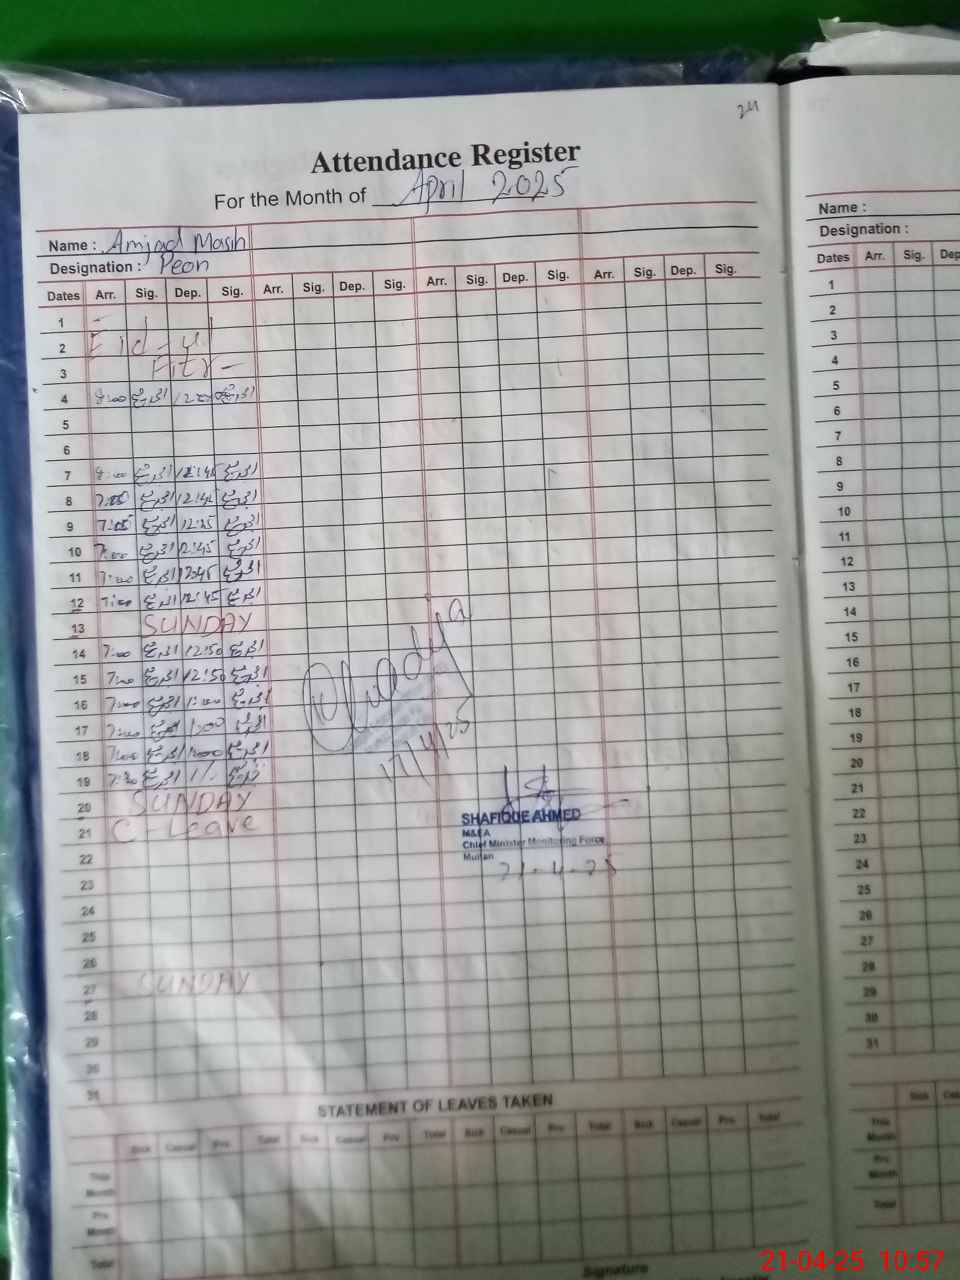 24
Attendance Register
For the Month of April 2025
Name : Amjad Masih
Designation : Peon
Dates Arr. Sig. Dep. Sig. Arr. Sig. Dep. Sig. Arr. Sig. Dep. Sig. Arr. Sig. Dep. Sig.
1
2 Eid - ul
3 Fitr -
4 8:00
5
6
7 8:00 12:45
8 7:00 12:45
9 7:05 12:45
10 7:00 12:45
11 7:00 12:45
12 7:00 12:45
13 SUNDAY
14 7:00 12:50
15 7:00 12:50
16 7:00 1:00
17 7:00 1:00
18 7:00 1:00
19 7:00
20 SUNDAY
21 C-Leave
22
23
24
25
26
27 SUNDAY
28
29
30
31
17/4/25
SHAFIQUE AHMED
M&EA
Chief Minister Monitoring Force
Multan
21-4-25
STATEMENT OF LEAVES TAKEN
Sick Casual Prv. Total Sick Casual Prv. Total Sick Casual Prv. Total Sick Casual Prv. Total
This Month
Prv. Month
Total
Signature
Name :
Designation :
Dates Arr. Sig. Dep
1
2
3
4
5
6
7
8
9
10
11
12
13
14
15
16
17
18
19
20
21
22
23
24
25
26
27
28
29
30
31
Sick Ca
This Month
Prv. Month
Total
21-04-25 10:57